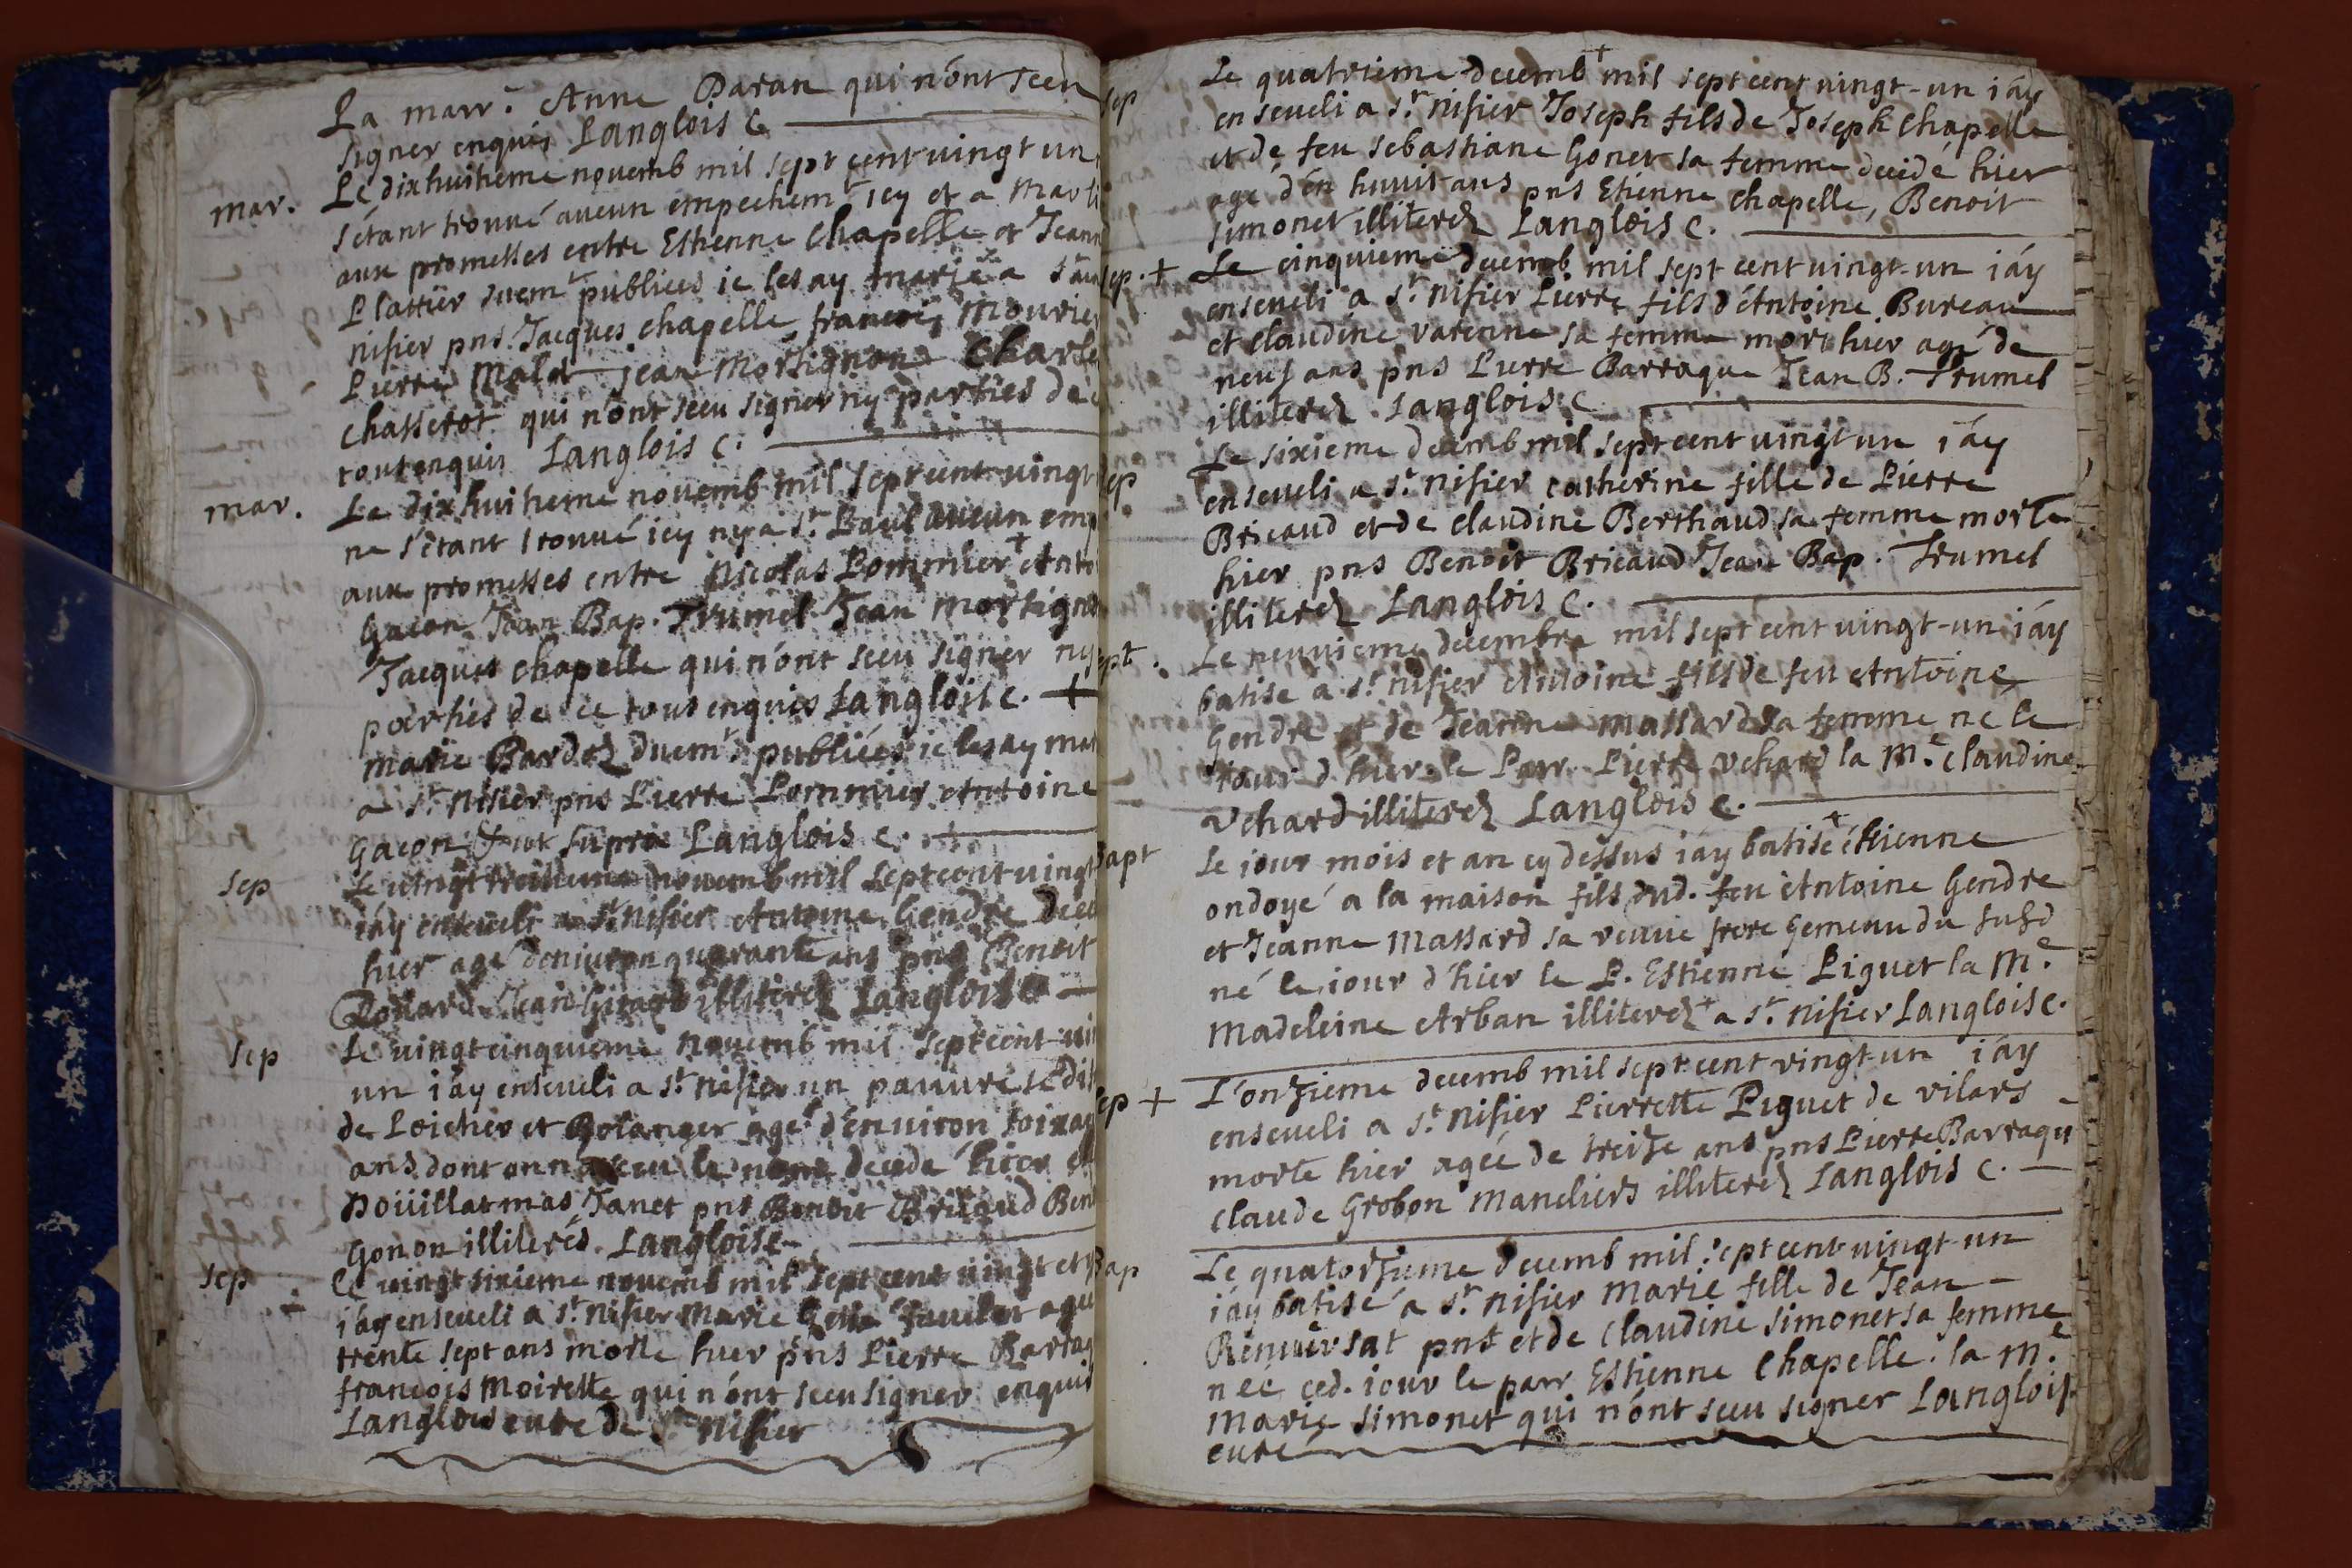 La marr. Anne Daran qui n'ont sceu
signer enquis Langlois C.
mar. Le dixhuitieme novemb mil sept cent vingt un
s'étant trouvé aucun empechemt icy et a Marli
aux promesses entre Esthenne Chapelle et Jeann
Plattier duemt publiees ie les ay mariéz a
nisier pns Jacques chapelle francois Mourier
Pierre jean Mortignon Charle
Chasserot qui n'ont sceu signer ny parties de
tout enquis Langlois C.
mar. Le dixhuitieme novemb mil sept cent vingt
ne s'étant trouvé icy ny a St. Paul aucun emp
aux promesses entre Nicolas Pommier + Anto
Gacon Jean Bap. Trumel Jean Mortigno
Jacques chapelle qui n'ont sceu signer ny
parties de ce tout enquis Langlois C. +
marie Bardoz duemt publiées ie les ay mar
a St. nisier pns Pierre Pommier Antoine
Gacon ut supra Langlois C.
Sep Le vingt troisieme novemb mil sept cent vingt
i'ay enseveli a St. nisier Antoine Gendre dece
hier agé d'environ quarante ans pns Benoit
Jean Girard illiterez Langlois C
Sep Le vingt cinquieme novemb mil sept cent vin
un i'ay enseveli a St. nisier un pauvre se dis
de Loicher et Bolanger agé d'environ soixan
ans dont on n'a sceu le nom decedé hier
Pouillat mas Janet pns Benoit Bricaud Ben
Gonon illiterés Langlois C
Sep Le vingt sixieme novemb mil sept cent vingt et
i'ay enseveli a St. Nisier Marie agée
trente sept ans morte hier pns Pierre Barraq
francois Moirette qui n'ont sceu signer enquis
Langlois curé de St. Nisier
sep Le quatrieme decemb + mil sept cent vingt-un i'ay
enseveli a St. nisier Joseph fils de Joseph chapelle
et de feu Sebastiane Gonet sa femme decedé hier
agé d'en huuit ans pns Etienne chapelle, Benoit
simonet illiterez Langlois C.
sep. + Le cinquieme decemb mil sept cent vingt-un i'ay
enseveli a St. Nisier Pierre fils d'Antoine Bureau
et Claudine varenne sa femme mort hier agé de
neuf ans pns Pierre Barraque Jean B. Trumel
illiterez Langlois C
sep Le sixieme decemb mil sept cent vingt un i'ay
enseveli a St. nisier catherine fille de Pierre
Bricaud et de Claudine Berthaud sa femme morte
hier pns Benoit Bricaud Jean Bap. Trumel
illiterez Langlois C.
Bapt. Le neuvieme decembre mil sept cent vingt-un i'ay
batisé a St. nisier Antoine fils de feu Antoine
Gendre et de Jeanne Massard sa femme né le
iour d'hier le Parr. Pierre Vchard la me. Claudine
Vchard illiterez Langlois C.
Bapt Le iour mois et an cy dessus i'ay batisé + étienne
ondoyé a la maison fils dud. feu Antoine Gendre
et Jeanne Massard sa veuve frere gemeau du susd
né le iour d'hier le P. Estienne Piguet la Me
Madeleine Arban illiterez + a St. nisier Langlois C.
sep + L'onzieme decemb mil sept cent vingt-un i'ay
enseveli a St. nisier Pierrette Piguet de vilars
morte hier agée de treize ans pns Pierre Barraqu
claude Grobon Maneliers illiterez Langlois C.
Bap Le quatorzieme decemb mil sept cent vingt un
i'ay batisé a St. nisier Marie fille de Jean
Renuersat pnt et de Claudine simonet sa femme
née ced. iour le parr Esthenne Chapelle. la me
Marie simonet qui n'ont sceu signer Langlois
curé